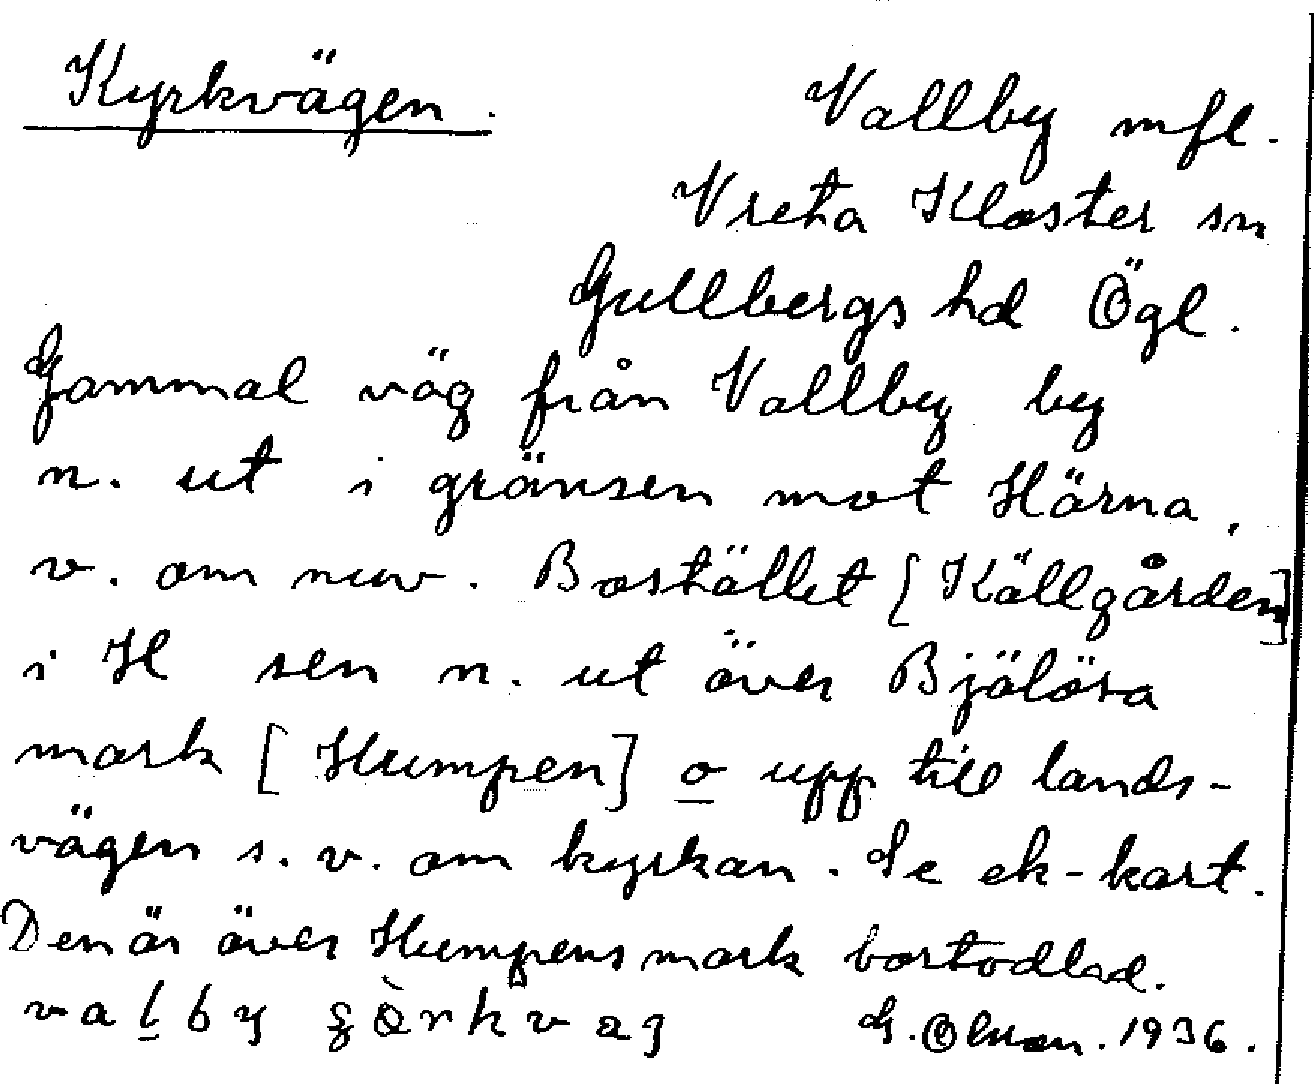 Kyrkvägen.
Vallby mfl.
Vreta Kloster sn
Gullbergs hd Ögl.
Gammal väg från Vallby by
n. ut i gränsen mot Härna,
v. om nuv. Bostället [Källgården]
i H sen n. ut över Bjälösa
mark [Humpen] o upp till lands-
vägen s. v. om kyrkan. Se ek-kart.
Den är över Humpens mark bortodlad.
G. Olsson. 1936.